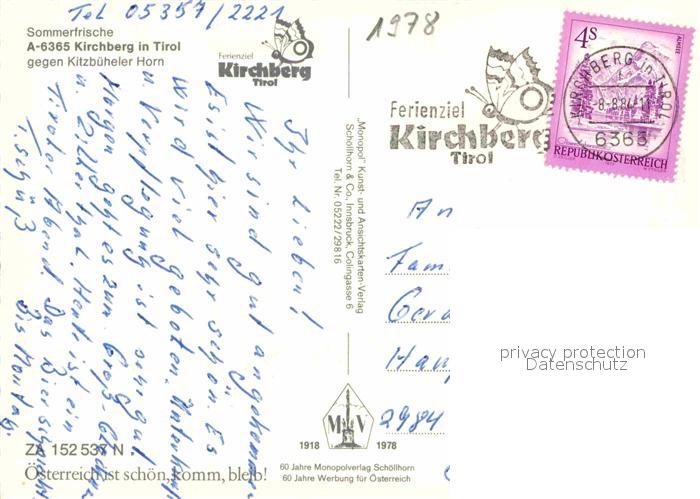 Tel 05357/2221
Sommerfrische
A-6365 Kirchberg in Tirol
gegen Kitzbüheler Horn
Ferienziel
Kirchberg
Tirol
1978
Ferienziel
Kirchberg
Tirol
4s
ALMSEE
KIRCHBERG in TIROL
-8.-8.84-1
6365
REPUBLIK ÖSTERREICH
Ihr Lieben!
Wir sind gut angekommen
Es ist hier sehr schön. Es
wird viel geboten. Unterkunft
u. Verpflegung ist
Morgen geht es zum Groß-
u. Zillertal. Heute ist ein
Tiroler Abend. Das Bier schmeckt
Bis Montag.
„Monopol" Kunst- und Ansichtskarten-Verlag
Schöllhorn & Co., Innsbruck, Colingasse 6
Tel. Nr. 05222/29816
An
Fam
Gera
Han
2984
privacy protection
Datenschutz
M V
1918 1978
60 Jahre Monopolverlag Schöllhorn
60 Jahre Werbung für Österreich
ZA 152 537 N
Österreich ist schön, komm, bleib!